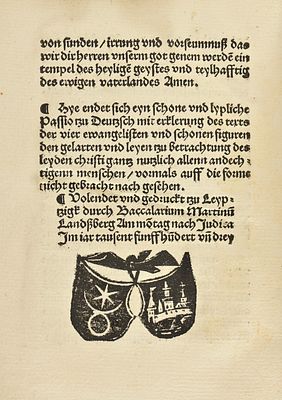 von sunden/ irrung vnd vorseumnuß das
wir dir herren vnserm got genem werdē ein
tempel des heyligē geystes vnd teylhafftig
des ewigen vaterlandes Amen.
¶ Hye endet sich eyn schone vnd lypliche
Passio zu Deutzsch mit erklerung des texts
der vier ewangelisten vnd schonen figuren
den gelarten vnd leyen zu betrachtung des
leyden christi gantz nutzlich allenn andech-
tigenn menschen/ vormals auff die forms
nicht gebracht nach gesehen.
¶ Volendet vnd gedruckt zu Leyp-
tzigk durch Baccalarium Martinū
Landßberg Am mōtag nach Judica
Im iar tausent funff hūdert vñ drey